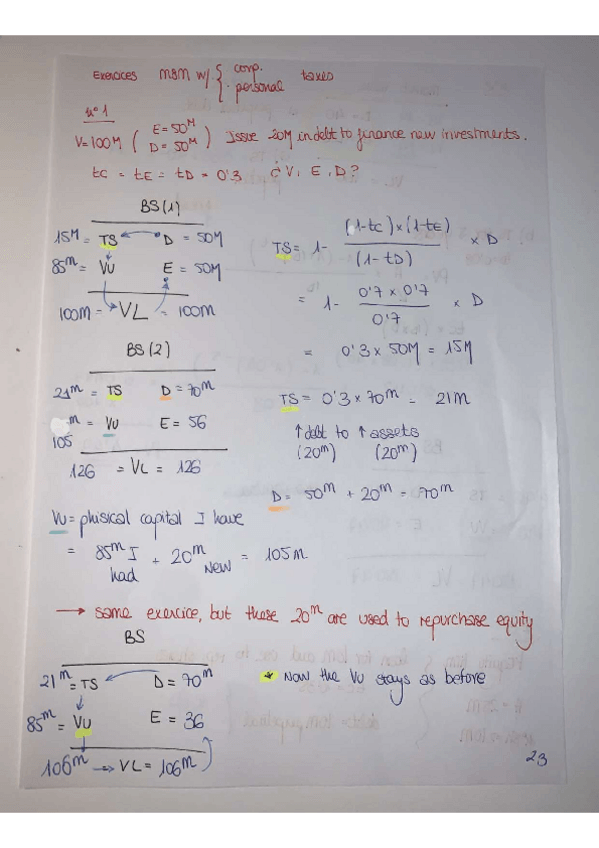 Exercices M&M w/ { corp. personal taxes
nº 1
V=100M ( E=50M D=50M ) Issue 20M in debt to finance new investments.
tc = tE = tD = 0'3 ¿ V, E, D?
BS(1)
15M = TS D = 50M
85m = VU E = 50M
100M = VL = 100M
TS = 1 - (1-tc)×(1-tE) / (1-tD) × D
= 1 - 0'7 × 0'7 / 0'7 × D
= 0'3 × 50M = 15M
BS(2)
21m = TS D = 70m
m = VU E = 56
105
126 = VL = 126
TS = 0'3 × 70m = 21M
↑debt to ↑assets
(20m) (20m)
D = 50m + 20m = 70m
VU = phisical capital I have
= 85m I had + 20m NEW = 105m
→ same exercice, but these 20m are used to repurchase equity
BS
21m = TS D = 70m
85m = VU E = 36
106m → VL = 106m
* Now the VU stays as before
23